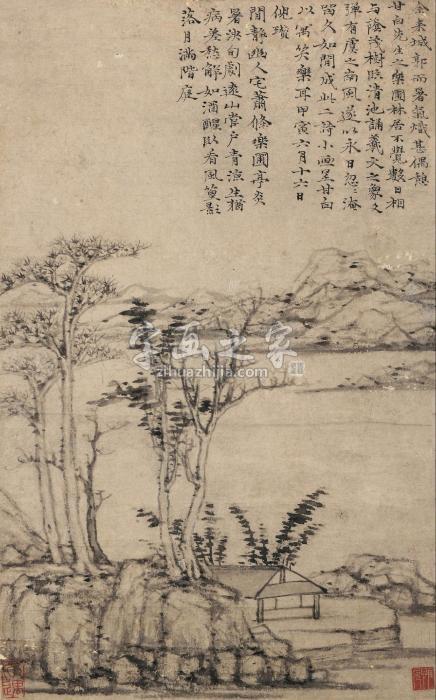 余来城郭而暑氣熾甚偶憩
甘白先生之樂圃林居不覺數日相
与蔭茂樹臨清池誦羲文之象爻
彈有虞之南風遂以永日忽〻淹
留久如開成此二詩小画呈甘白
以寓笑樂耳甲寅六月十六日
倪瓚
閒靜幽人宅蕭條樂圃亭炎
暑浹旬劇遠山當户青涼生猶
病差愁解如酒醒臥看風篁影
落月滿階庭
字画之家
zihuazhijia.com